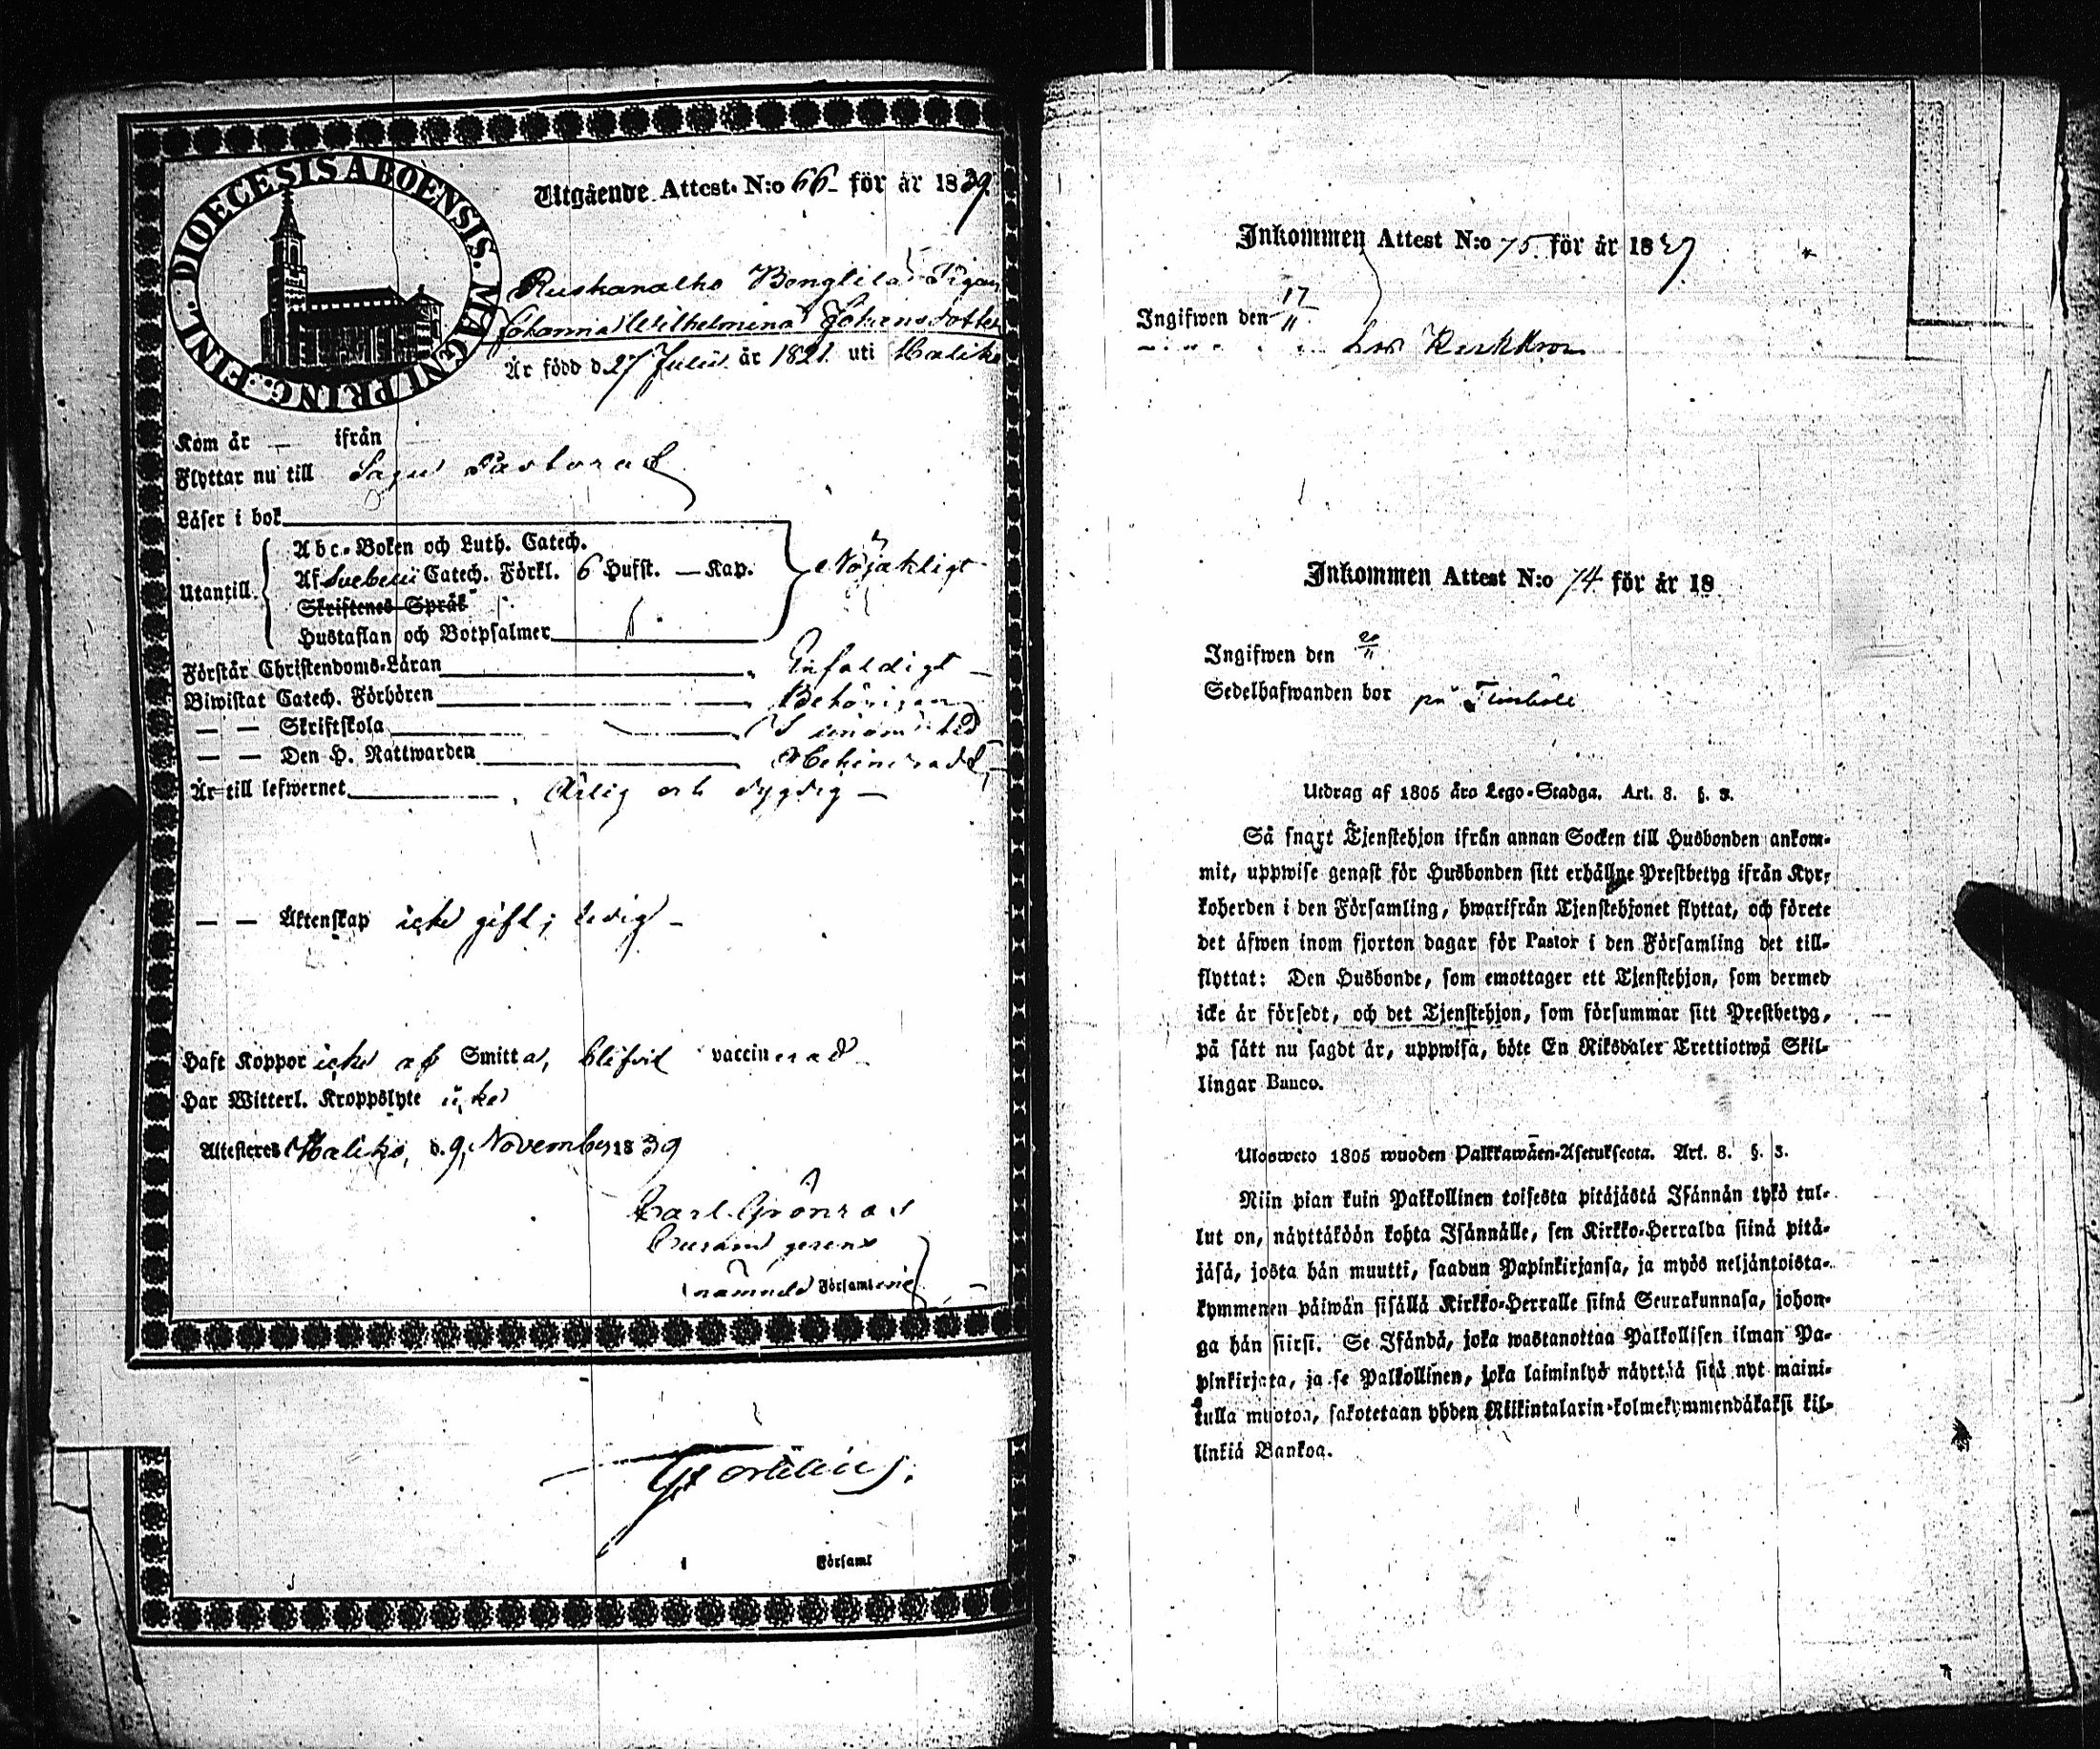 DIOECESIS ABOENSIS. MAGNI PRINC. FINL.
Utgående Attest. N:o 66 för år 1839.
Ruskanalho Pigan
Johanna Wilhelmina Johansdotter
År född d 27 Julii år 1821. uti Haliko
Kom år — ifrån
Flyttar nu till Sagu Pastorat
Läser i bok
Abc-Boken och Luth. Catech.
Af Svebelii Catech. Förkl. 6 Hufst. — Kap. Nöjaktligt
Utantill
Skriftenes Språk
Hustaflan och Botpsalmer
Förstår Christendoms-Läran Enfaldigt —
Biwistat Catech. Förhören Behörigen
— — Skriftskola
— — Den H. Nattwarden Obehindrad
Är till lefwernet Ärlig och dygdig —
— — Äktenskap icke gift; ledig —
Haft Koppor icke af Smitta, blifvit vaccinerad
Har Witterl. Kroppslyte icke
Attesteras Haliko, d. 9 November 1839
Carl Grönros
Curam gerens
i nämnde Församling
Församl
Inkommen Attest N:o 75. för år 1839
Ingifwen den 17/11
Inkommen Attest N:o 74. för år 18
Ingifwen den 20/11
Sedelhafwanden bor på
Utdrag af 1805 åra Lego-Stadga. Art. 8. §. 3.
Så snart Tjenstehjon ifrån annan Socken till Husbonden ankom-
mit, uppwise genast för Husbonden sitt erhållne Prestbetyg ifrån Kyr-
koherden i den Församling, hwarifrån Tjenstehjonet flyttat, och förete
det äfwen inom fjorton dagar för Pastor i den Församling det till-
flyttat: Den Husbonde, som emottager ett Tjenstehjon, som dermed
icke är försedt, och det Tjenstehjon, som försummar sitt Prestbetyg,
på sätt nu sagdt är, uppwisa, böte En Riksdaler Trettiotwå Skil-
lingar Banco.
Ulosweto 1805 wuoden Palkkawäen-Asetuksesta. Art. 8. §. 3.
Niin pian kuin Palkollinen toisesta pitäjästä Isännän tykö tul-
lut on, näyttäköön kohta Isännälle, sen Kirkko-Herralda siinä pitä-
jäsä, josta hän muutti, saadun Papinkirjansa, ja myös neljäntoista-
kymmenen päiwän sisällä Kirkko-Herralle siinä Seurakunnasa, johon-
ga hän siirsi. Se Isändä, joka wastanottaa Palkollisen ilman Pa-
pinkirjata, ja se Palkollinen, joka laiminlyö näyttää sitä nyt maini-
tulla muotoa, sakotetaan yhden Riikintalarin kolmekymmendäkaksi kil-
linkiä Bankoa.